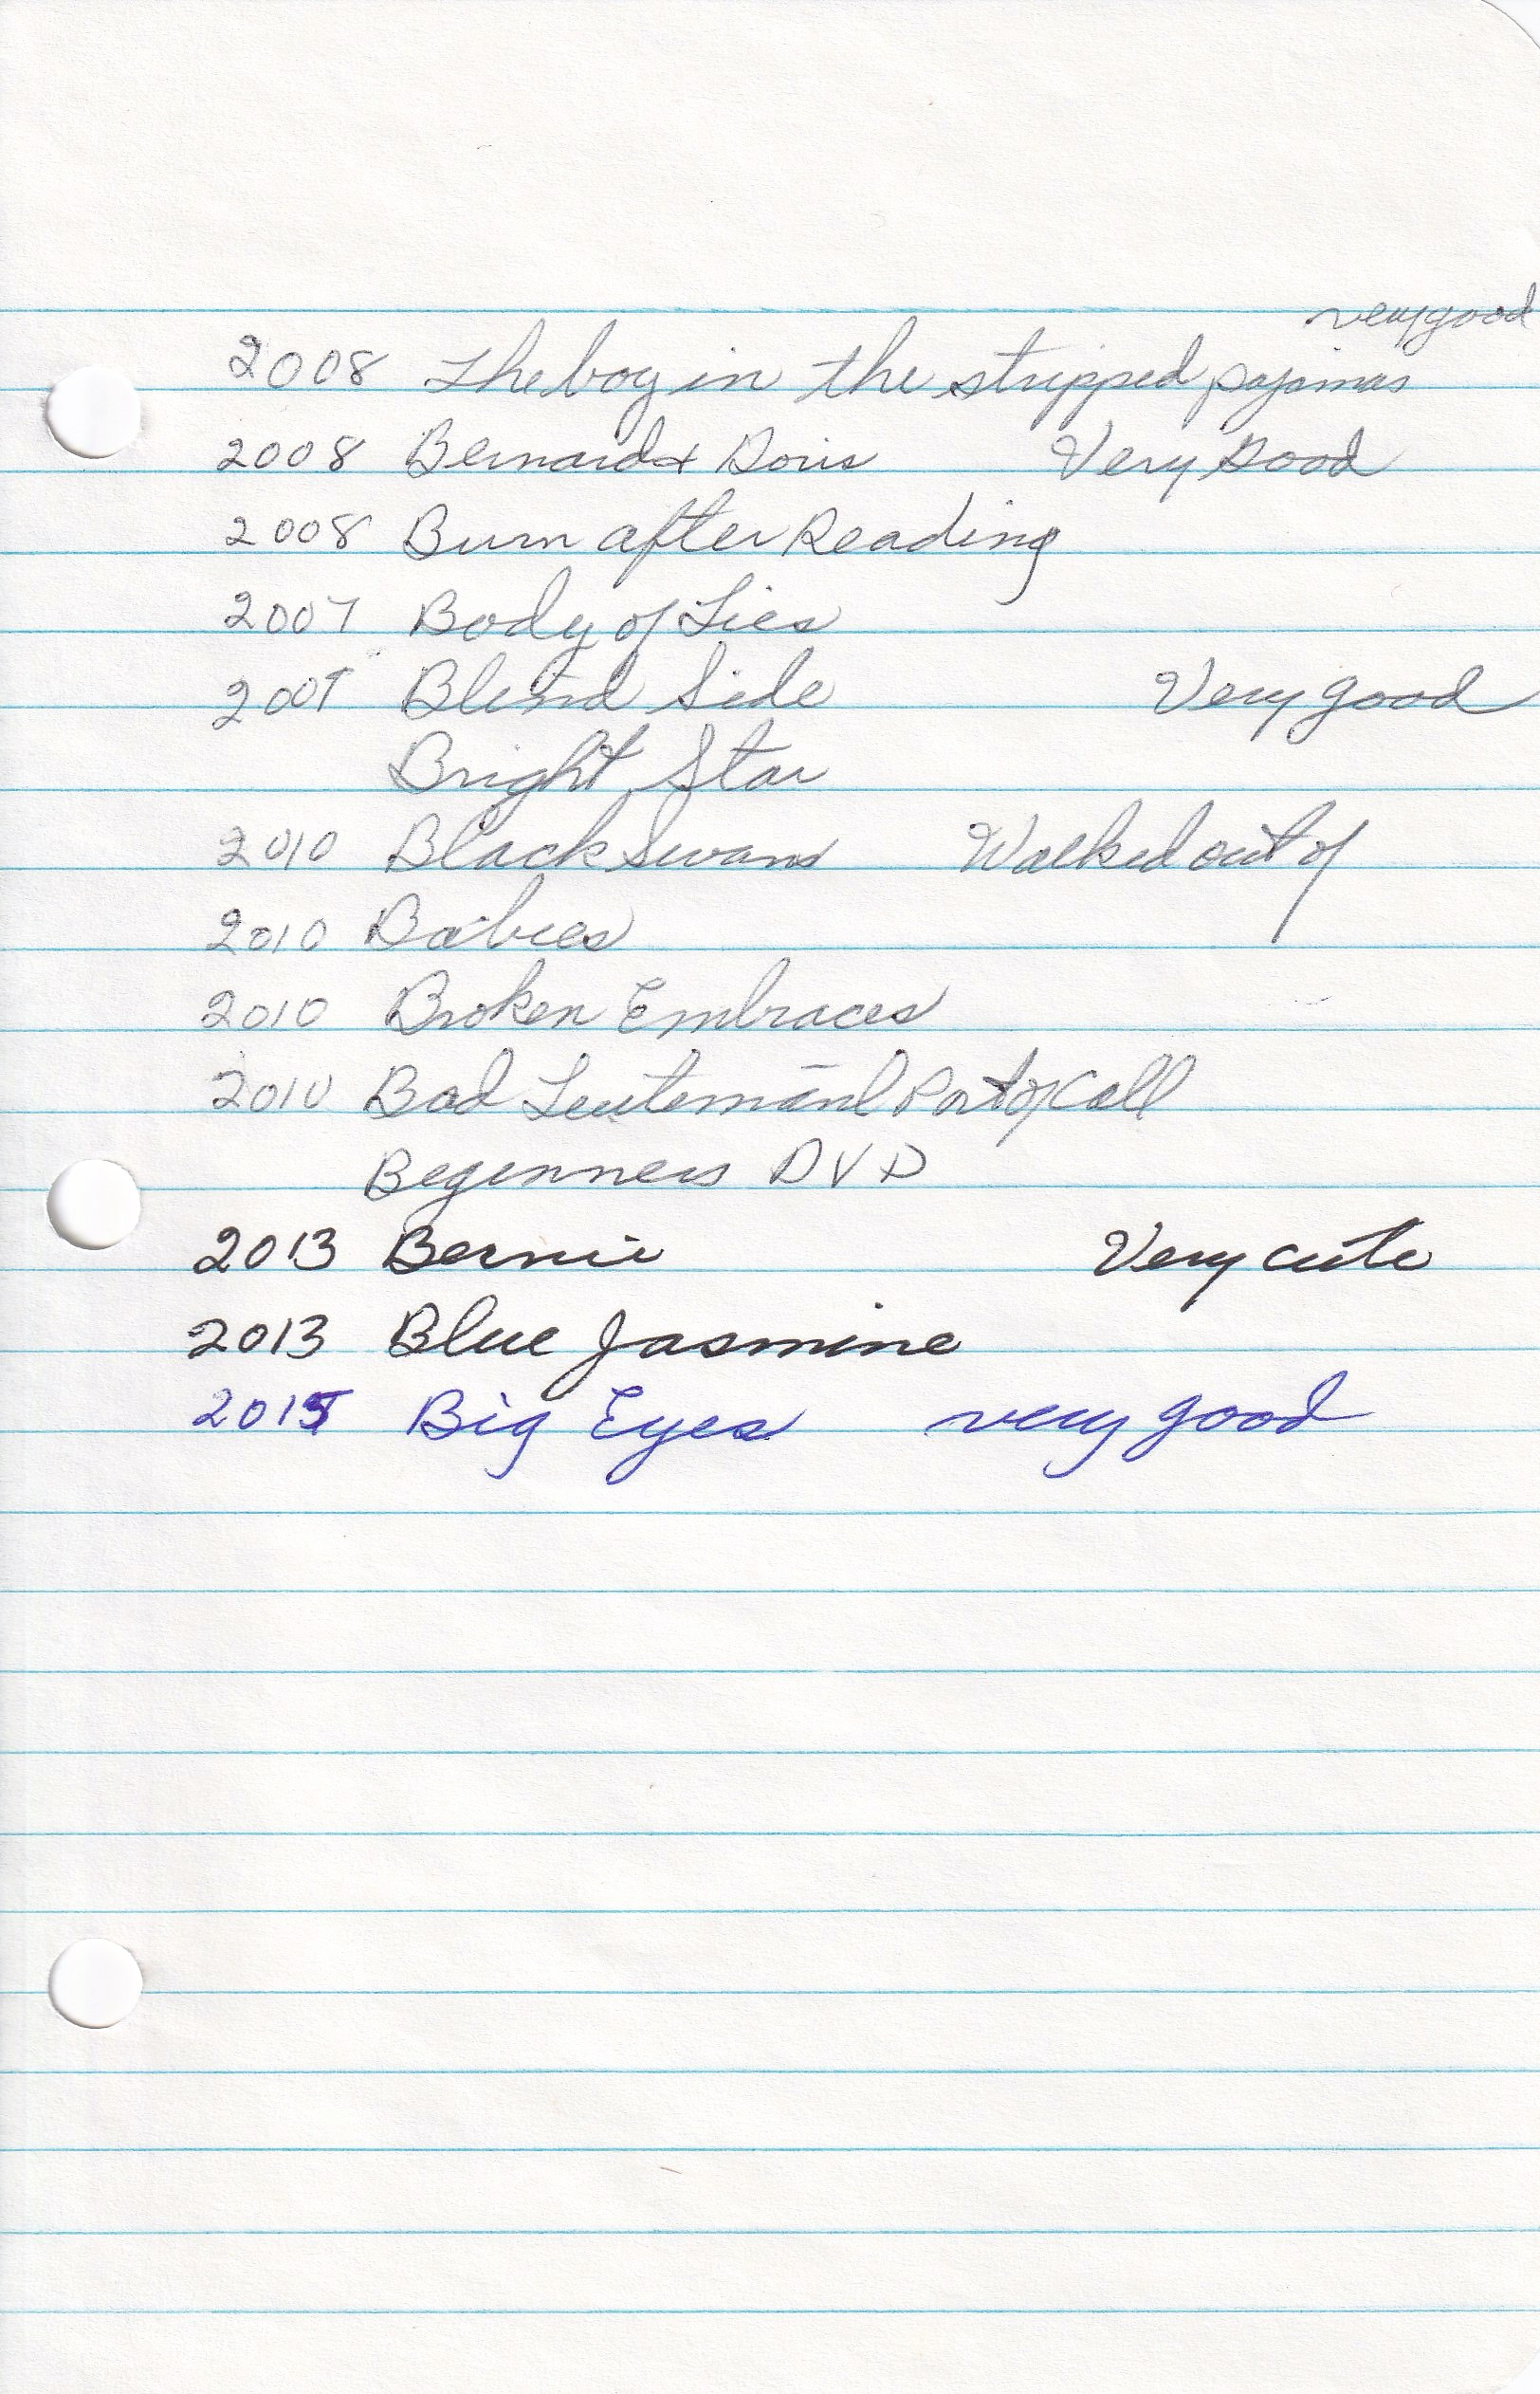 very good
2008 The boy in the stripped pajamas
2008 Bernard & Doris Very Good
2008 Burn after Reading
2007 Body of Lies
2009 Blind Side Very good
Bright Star
2010 Black Swans Walked out of
2010 Babies
2010 Broken Embraces
2010 Bad Port of Call
Beginners DVD
2013 Bernie Very cute
2013 Blue Jasmine
2015 Big Eyes very good